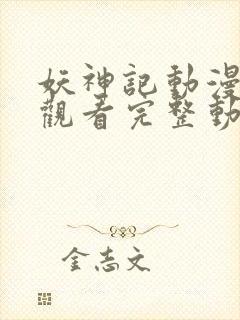 妖神記動漫
觀看完整動
金志文